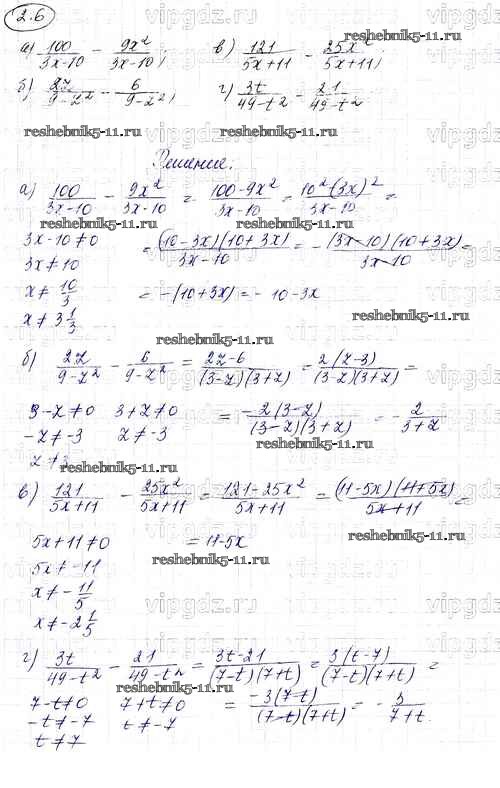 2.6
reshebnik5-11.ru
а) 100/(3x-10) - 9x²/(3x-10); в) 121/(5x+11) - 25x²/(5x+11);
б) 2z/(9-z²) - 6/(9-z²); г) 3t/(49-t²) - 21/(49-t²)
reshebnik5-11.ru reshebnik5-11.ru
Решение.
а) 100/(3x-10) - 9x²/(3x-10) = (100-9x²)/(3x-10) = (10²-(3x)²)/(3x-10) =
reshebnik5-11.ru reshebnik5-11.ru
3x-10≠0 = (10-3x)(10+3x)/(3x-10) = -(3x-10)(10+3x)/(3x-10) =
3x≠10
x≠10/3 = -(10+3x) = -10-3x
x≠3 1/3
reshebnik5-11.ru
б) 2z/(9-z²) - 6/(9-z²) = (2z-6)/((3-z)(3+z)) = 2(z-3)/((3-z)(3+z)) =
3-z≠0 3+z≠0 = -2(3-z)/((3-z)(3+z)) = -2/(3+z)
-z≠-3 z≠-3
reshebnik5-11.ru
z≠3
reshebnik5-11.ru
в) 121/(5x+11) - 25x²/(5x+11) = (121-25x²)/(5x+11) = (11-5x)(11+5x)/(5x+11) =
5x+11≠0 = 11-5x
reshebnik5-11.ru
5x≠-11
reshebnik5-11.ru
x≠-11/5
x≠-2 1/5
г) 3t/(49-t²) - 21/(49-t²) = (3t-21)/((7-t)(7+t)) = 3(t-7)/((7-t)(7+t)) =
reshebnik5-11.ru
7-t≠0 7+t≠0 = -3(7-t)/((7-t)(7+t)) = -3/(7+t).
-t≠-7 t≠-7
t≠7
reshebnik5-11.ru
vipgdz.ru